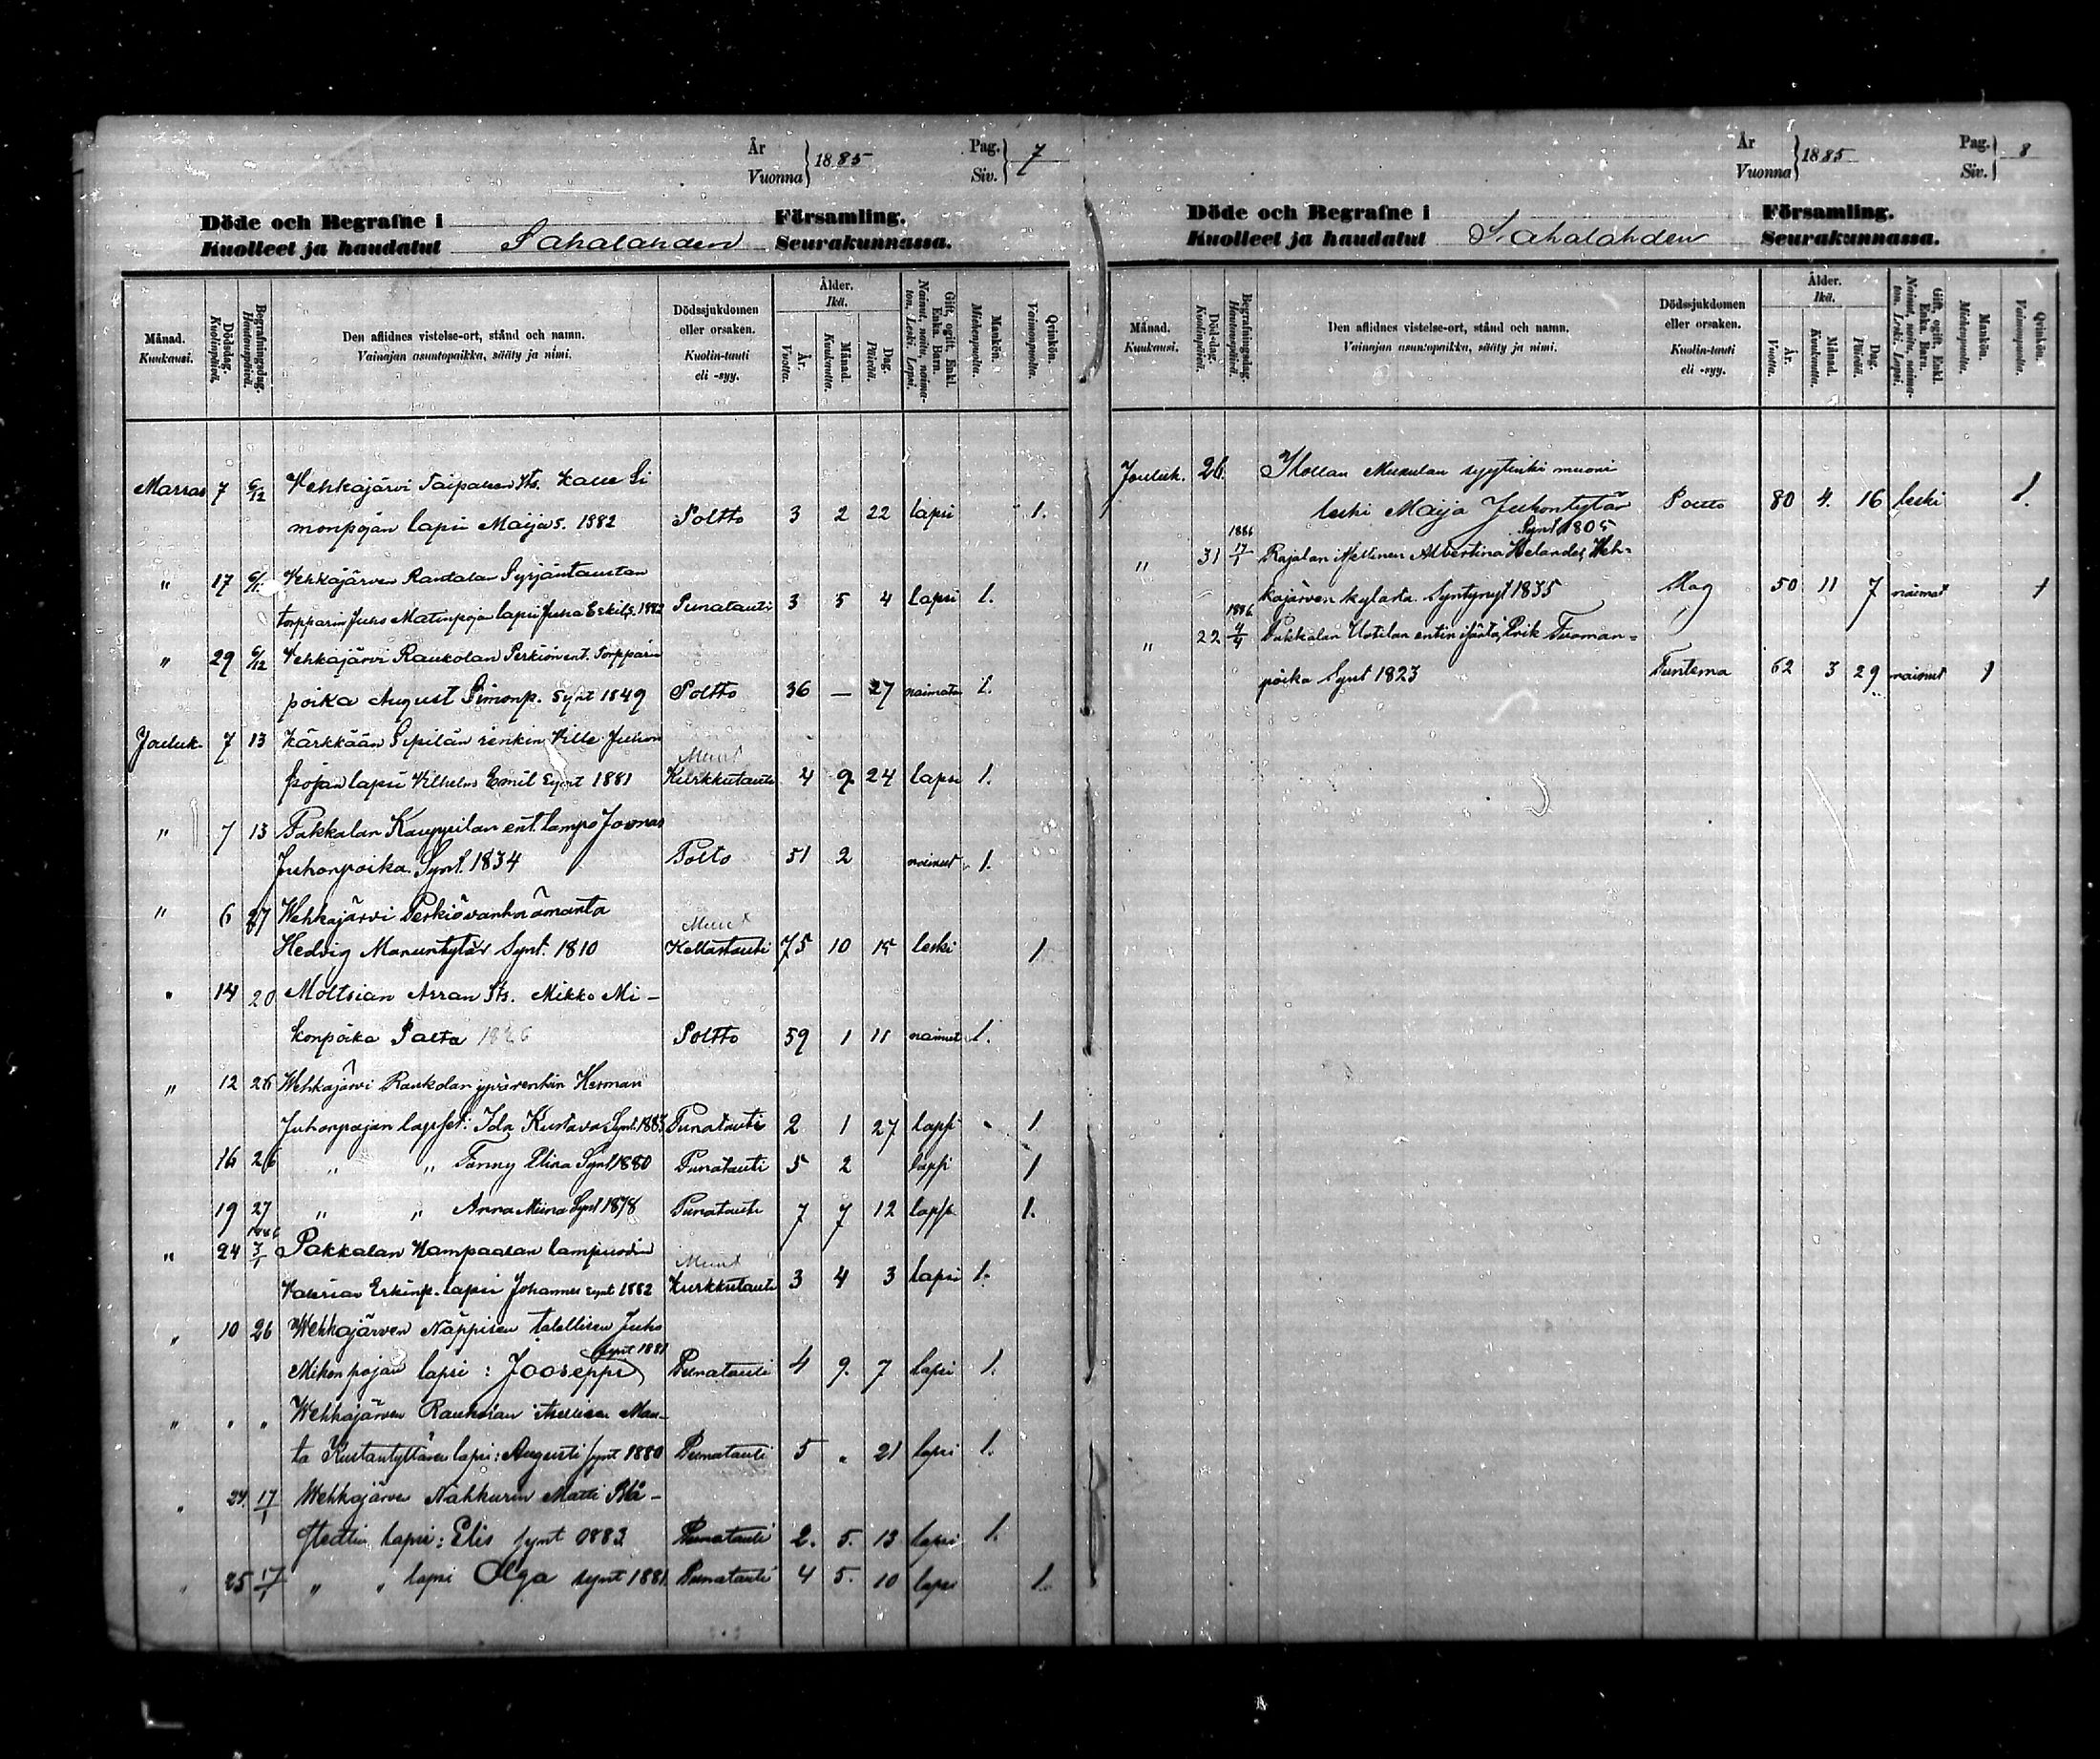 År
Vuonna } 1885
Pag.
Siv. } 7
Döde och Begrafne i Församling.
Kuolleet ja haudatut Sahalahden Seurakunnassa.
Månad. Kuukausi.
Dödsdag. Kuolinpäivä.
Begrafningsdag. Hautauspäivä.
Den aflidnes vistelse-ort, stånd och namn.
Vainajan asuntopaikka, sääty ja nimi.
Dödssjukdomen eller orsaken.
Kuolin-tauti eli -syy.
Ålder. Ikä.
År. Vuotta.
Månad. Kuukautta.
Dag. Päivää.
Gift, ogift, Enkl. Enka. Barn.
Nainut, naitu, naimaton, Leski, Lapsi.
Mankön. Miehenpuolta.
Qvinkön. Vaimonpuolta.
Marras 7 6/12 Vehkajärvi Taipaleen Its. Kalle Si
monpojan lapsi Maija s. 1882 Poltto 3 2 22 lapsi 1.
" 17 Vehkajärven Rautalan Syrjäntaustan
torpparin Juho Matinpojan lapsi Juha Eskil s. 1882 Punatauti 3 5 4 lapsi 1.
" 29 6/12 Vehkajärvi Raukolan Perkiön ent. torpparin
poika August Simonp. Synt 1849 Poltto 36 — 27 naimaton 1.
Jouluk. 7 13 Kärkkään Sipilän renkin Ville Juhon
pojan lapsi Vilhelm Emil Synt 1881 Kurkkutauti 4 9 24 lapsi 1.
" 7 13 Pakkalan Kauppilan ent. lampo Joonas
Juhonpoika Synt. 1834 Poltto 51 2 nainut 1.
" 6 27 Wehkajärvi Perkiö vanha ämäntä
Hedvig Manuntytär Synt. 1810 Keltatauti 75 10 15 leski 1
" 14 20 Moltsian Arran Its. Mikko Mi-
konpoika Palta 1826 Poltto 59 1 11 nainut 1.
" 12 26 Wehkajärvi Raukolan Herman
Juhonpojan lapset: Ida Kustava Synt. 1883 Punatauti 2 1 27 lapsi 1
16 26 " " Fanny Elina Synt 1880 Punatauti 5 2 lapsi 1
19 27 " " Anna Miina Synt 1878 Punatauti 7 7 12 lapsi 1.
1886
" 24 3/1 Pakkalan Hampaalan lampuodin
Erkinp. lapsi Johannes synt 1882 Kurkkutauti 3 4 3 lapsi 1.
" 10 26 Wehkajärven Näppisen talollisen Juho
synt 1881
Mikonpojan lapsi: Jooseppi Punatauti 4 9. 7 lapsi 1.
" " " Wehkajärven Raukolan itsellisen Man-
ta Kustantyttären lapsi: Augusti synt 1880 Punatauti 5 " 21 lapsi 1.
" 24 17/1 Wehkajärven Nahkurin Matti Blå-
stedtin lapsi: Elis synt 1883 Punatauti 2. 5. 13 lapsi 1.
" 25 17/1 " " lapsi Olga synt 1881 Punatauti 4 5. 10 lapsi 1.
År
Vuonna } 1885
Pag.
Siv. } 8
Döde och Begrafne i Församling.
Kuolleet ja haudatut Sahalahden Seurakunnassa.
Månad. Kuukausi.
Dödsdag. Kuolinpäivä.
Begrafningsdag. Hautauspäivä.
Den aflidnes vistelse-ort, stånd och namn.
Vainajan asuntopaikka, sääty ja nimi.
Dödssjukdomen eller orsaken.
Kuolin-tauti eli -syy.
Ålder. Ikä.
År. Vuotta.
Månad. Kuukautta.
Dag. Päivää.
Gift, ogift, Enkl. Enka. Barn.
Nainut, naitu, naimaton, Leski, Lapsi.
Mankön. Miehenpuolta.
Qvinkön. Vaimonpuolta.
Jouluk. 26. syytinki muori
leski Maija Juhontytär Poltto 80 4. 16 leski 1.
Synt 1805
1886
" 31 17/1 Rajalan Albertina Helander, Weh-
kajärven kylästä. Syntynyt 1835 50 11 7 nainut 1
1886
" 22 Pakkalan Uotilan entin isäntä Erik Tuoman-
poika Synt 1823 Tuntema 62 3 29 nainut 1